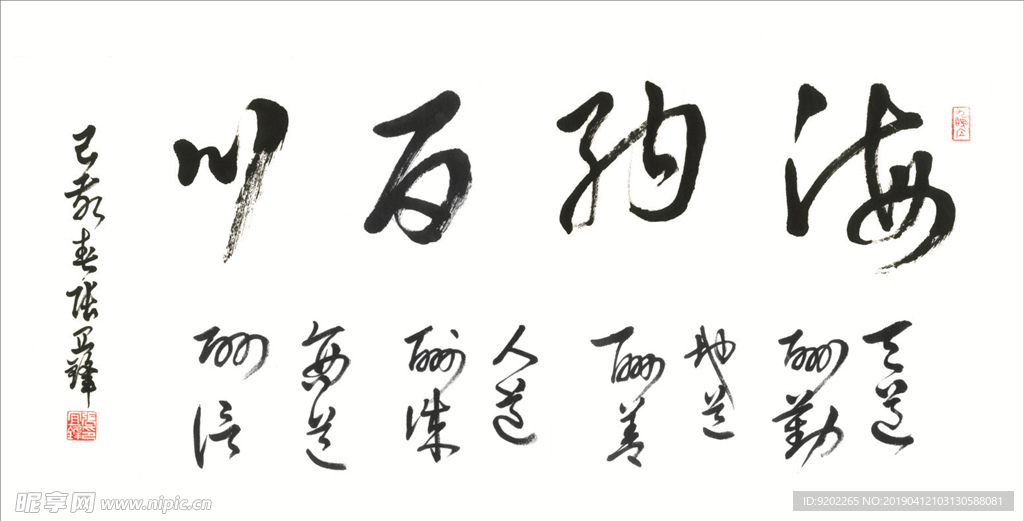 海纳百川
天道
酬勤
地道
酬善
人道
酬诚
商道
酬信
己亥春张卫锋
昵享网 www.nipic.cn
ID:9202265 NO:20190412103130588081